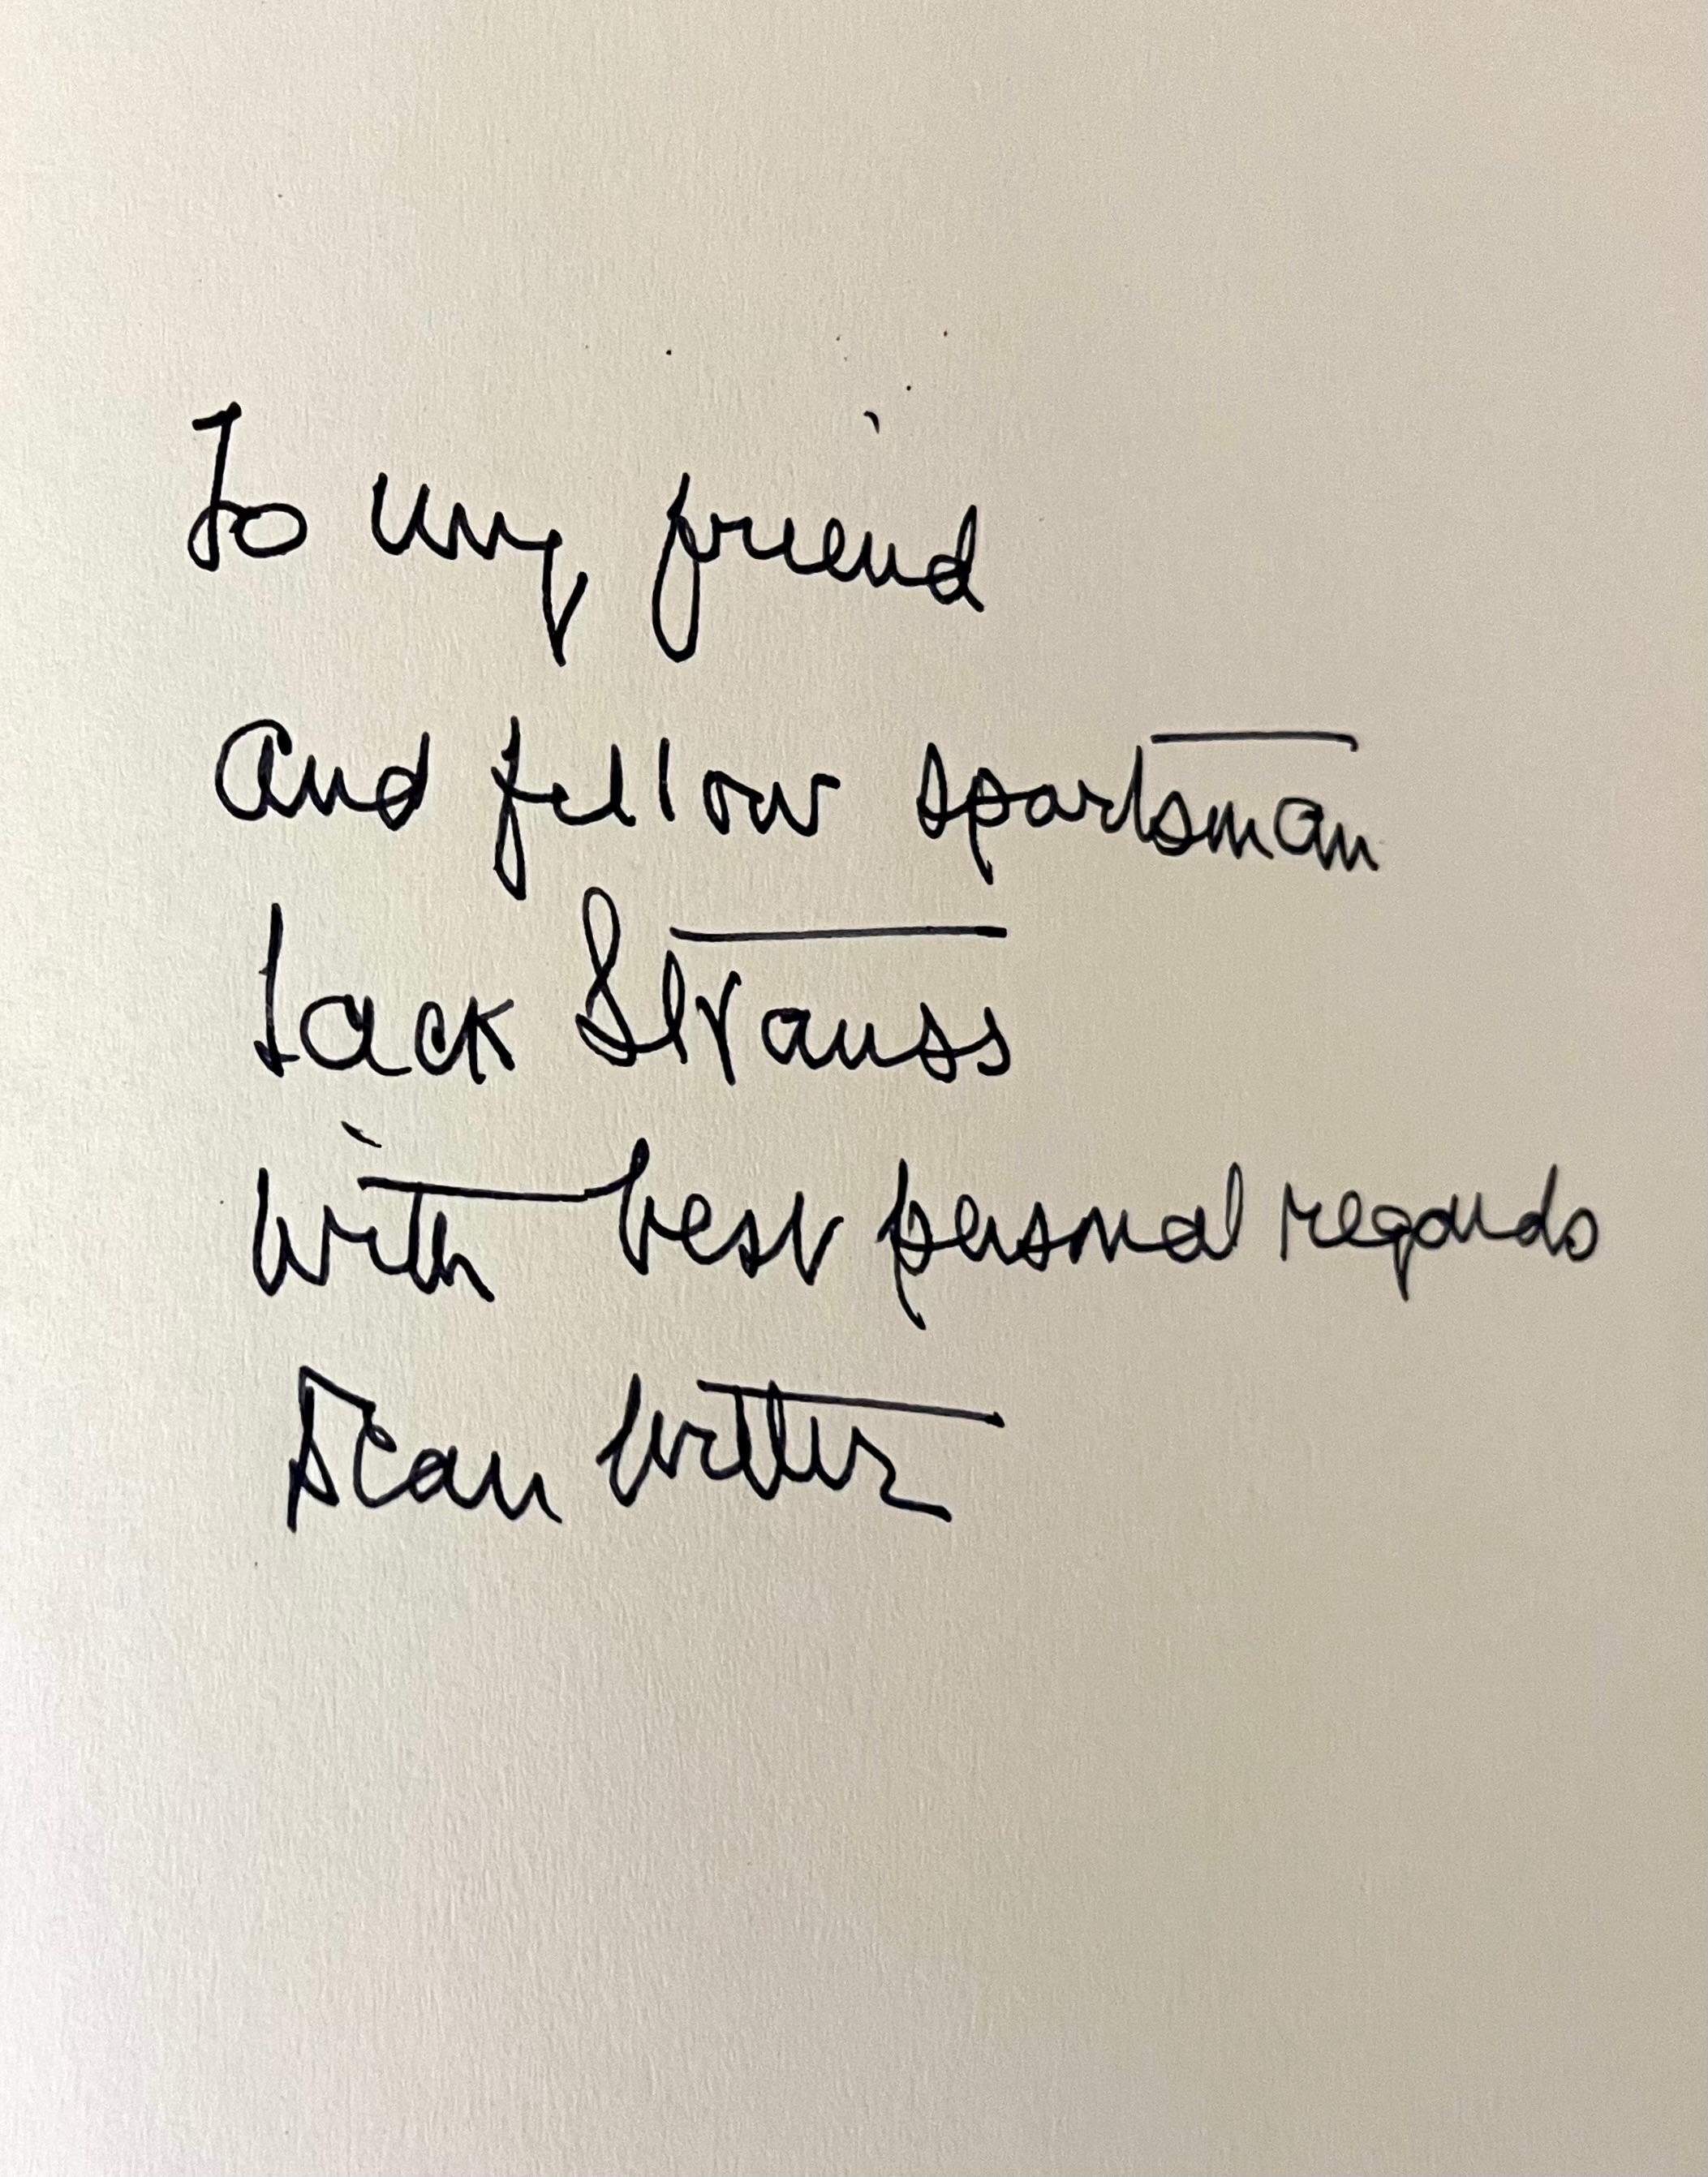 To my friend
and fellow sportsman
Jack Strauss
With best personal regards
Dean Witter